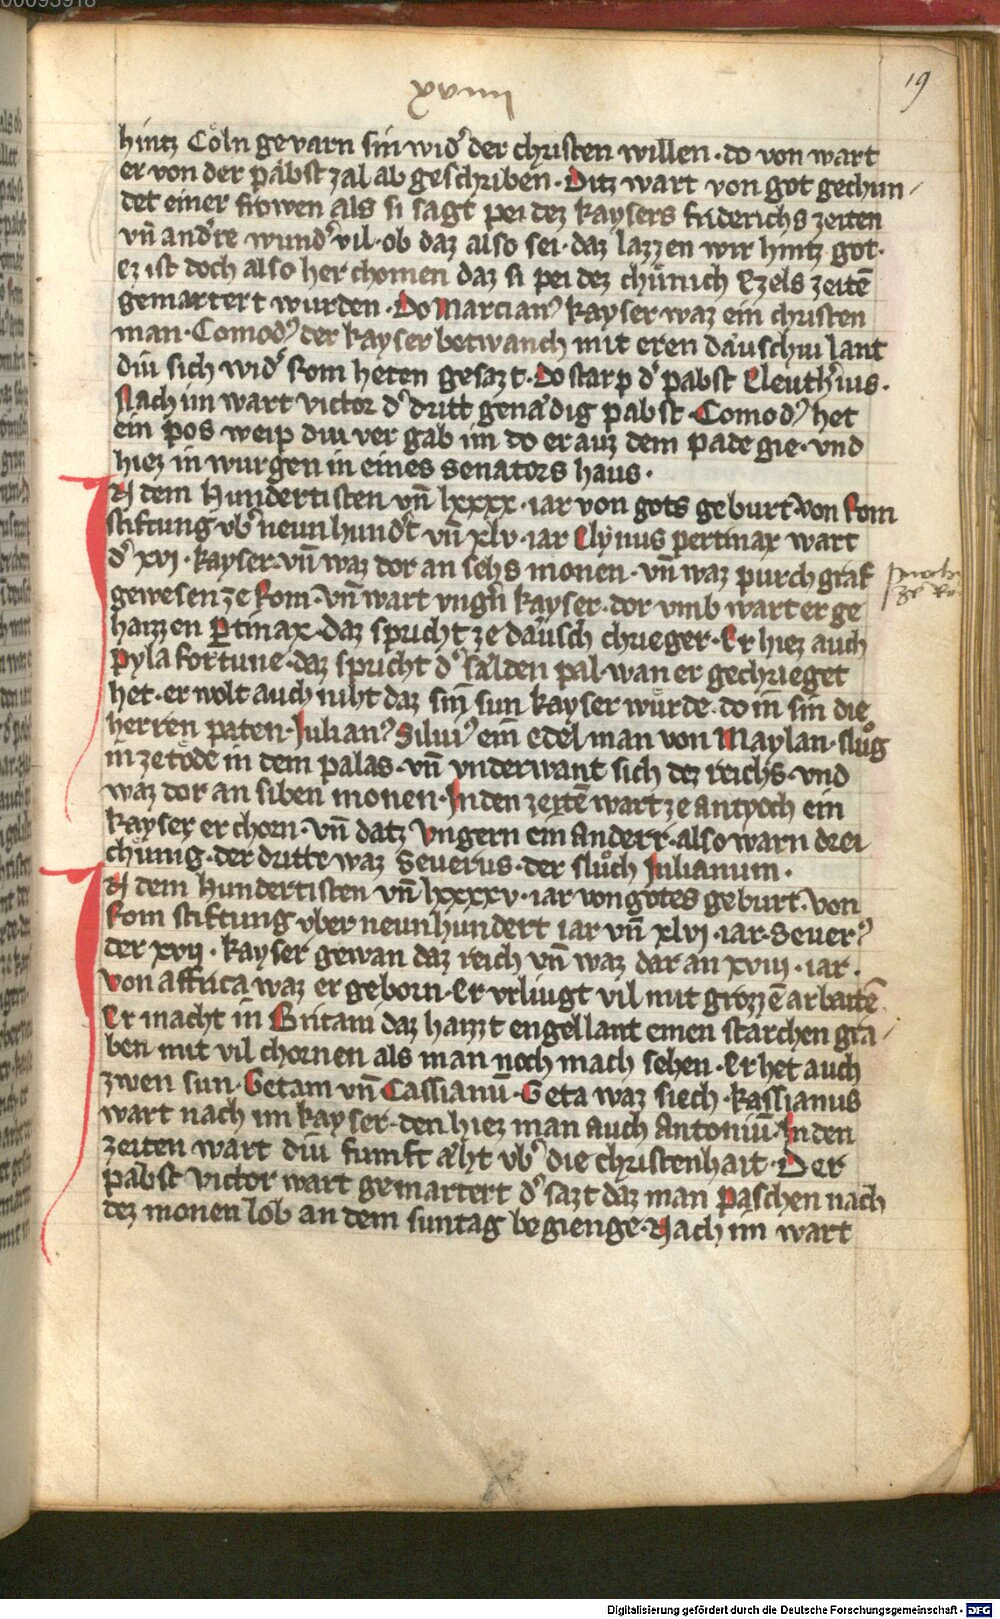 xviiii
19
hintz Cöln gevarn sin wid᷑ der christen willen · do von wart
er von der päbst zal ab geschriben · Ditz wart von got gechun
det einer frowen als si sagt pei dez kaysers friderichs zeiten
vn̄ and᷑re wund᷑ vil · ob daz also sei · daz lazzen wir hintz got ·
ez ist doch also her chomen daz si pei dez chünich Ezels zeitē
gemartert wurden · Do Marcian᷒ kayser waz ein christen
man · Comod᷒ der kayser betwanch mit eren däuschiu lant
diu sich wid᷑ Rom heten gesazt · Do starp d᷑ pabst Eleuth᷑ius ·
Nach im wart victor d᷑ dritt genädig pabst · Comod᷒ het
ein pös weip diu ver gab im do er auz dem pade gie · vnd
hiez in würgen in eines senators haus ·
In dem Hundertisten vn̄ lxxxx · iar von gots geburt · von Rom
stiftung vb᷑ neun hund᷑t vn̄ xlv · iar Elynus pertinax wart
d᷑ xvi · kayser · vn̄ waz dor an sehs monen · vn̄ waz purchgraf
gewesen ze Rom · vn̄ wart vngn̄ kayser · dor vmb wart er ge
haizzen Ptinax · daz spricht ze däusch chrieger · Er hiez auch
Pyla fortune · daz spricht d᷑ sälden pal · wan er gechrieget
het · er wolt auch niht daz sin sun kayser würde · do in sin die
herren paten · Julian᷒ Silui᷒ ein edel man von Maylan · slůg
in ze töde in dem palas · vn̄ vnderwant sich dez reichs · vnd
waz dor an siben monen · In den zeitē wart ze antyoch ein
kayser er chorn · vn̄ datz Vngern ein anderr · also warn drei
chünig · der dritte waz Seuerus · der slůch Julianum ·
In dem Hundertisten vn̄ lxxxxv · iar von gotes geburt · von
Rom stiftung vber neunhundert iar vn̄ xlvi · iar · Seuer᷒
der xvii · kayser gewan daz reich vn̄ waz dar an xviii · iar ·
von affrica waz er geborn · Er vrliugt vil mit grozzē arbaitē
Er macht in Britani daz haizzt engellant einen starchen gra
ben mit vil chornen als man noch mach sehen · Er het auch
zwen sun · Getam vn̄ Cassianū · Geta waz siech · kassianus
wart nach im kayser · den hiez man auch Antoniū · In den
zeiten wart diu fumft äht vb᷑ die christenhait · Der
pabst Victor wart gemartert d᷑ sazt daz man paschen nach
dez monen lob an dem suntag begienge · Nach im wart
Digitalisierung gefördert durch die Deutsche Forschungsgemeinschaft - DFG